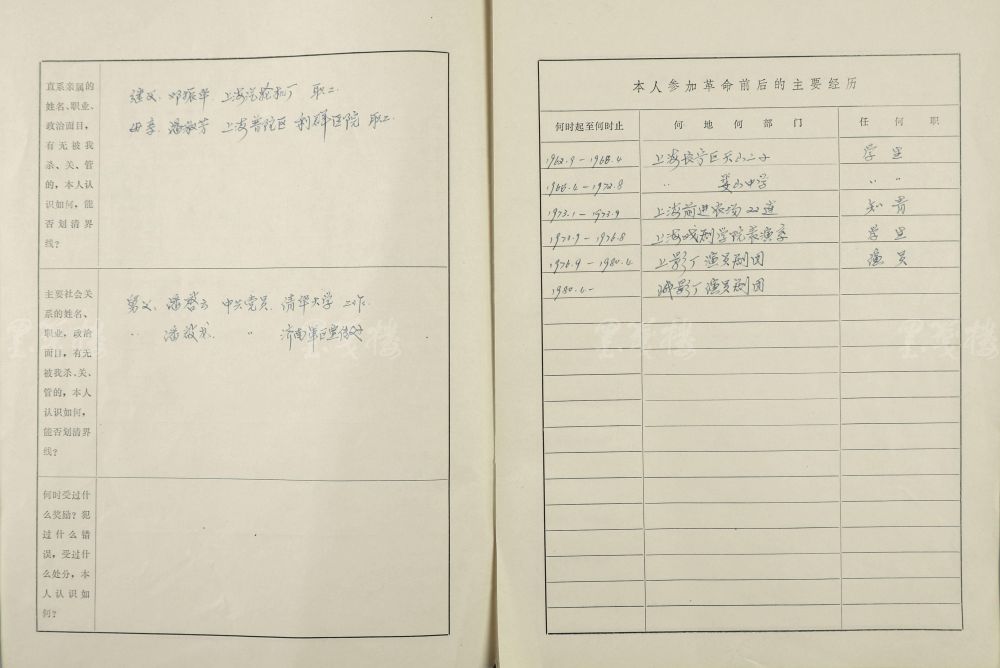 直系亲属的
姓名、职业、
政治面目，
有无被我
杀、关、管
的，本人认
识如何，能
否划清界
线？
继父 邓振华 上海汽轮机厂 职工
母亲 潘 芳 上海普陀区利群医院 职工
主要社会关
系的姓名、
职业，政治
面目，有无
被我杀、关、
管的，本人
认识如何，
能否划清界
线？
舅父 潘 云 中共党员 清华大学 工作
〃 潘 〃 济南军区宣传处
何时受过什
么奖励？犯
过什么错
误，受过什
么处分，本
人认识如
何？
本人参加革命前后的主要经历
何时起至何时止 何地何部门 任何职
1962.9－1968.4 上海长宁区天山二小 学生
1968.4－1972.8 〃 娄山中学 〃 〃
1973.1－1973.9 上海前进农场22连 知青
1973.9－1976.8 上海戏剧学院表演系 学生
1976.9－1980.4 上影厂演员剧团 演员
1980.4－ 峨影厂演员剧团